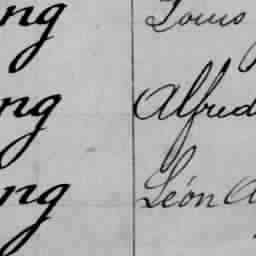 ng Louis
ng Alfred
ng Léon A